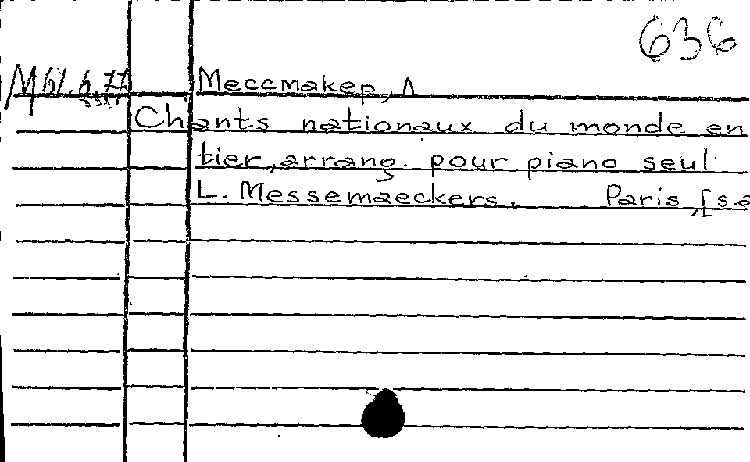 636
Мессмакер, Л
Chants nationaux du monde en
tier, arrang. pour piano seul
L. Messemaeckers. Paris, [s.a